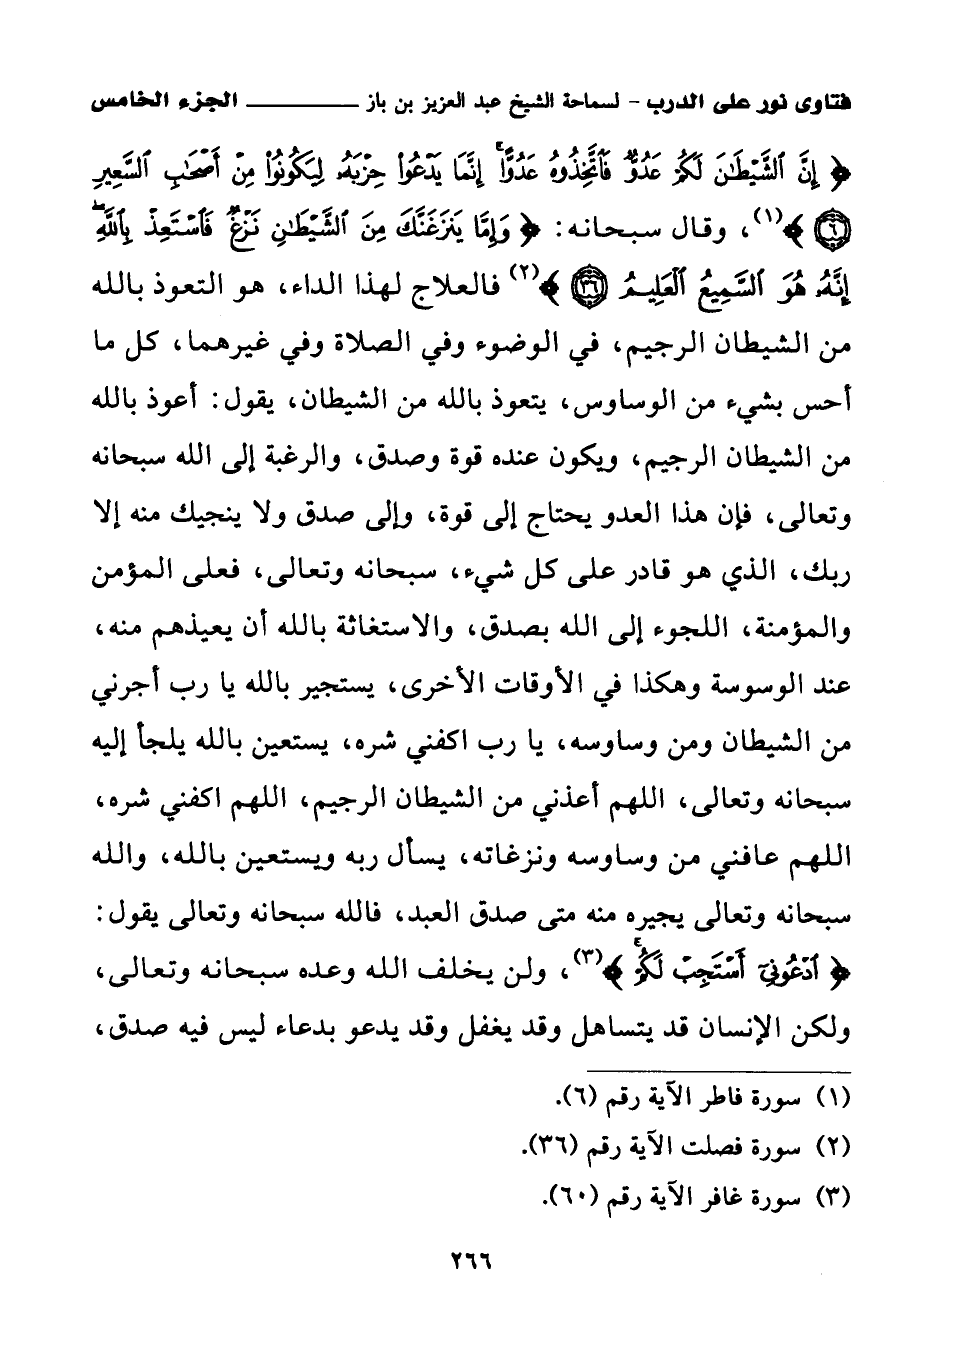 فتاوى نور على الدرب - لسماحة الشيخ عبد العزيز بن باز ــــــــــــــ الجزء الخامس
﴿ إِنَّ ٱلشَّيْطَٰنَ لَكُمْ عَدُوٌّ فَٱتَّخِذُوهُ عَدُوًّا ۚ إِنَّمَا يَدْعُوا۟ حِزْبَهُۥ لِيَكُونُوا۟ مِنْ أَصْحَٰبِ ٱلسَّعِيرِ
۝٦ ﴾(١)، وقال سبحانه: ﴿ وَإِمَّا يَنزَغَنَّكَ مِنَ ٱلشَّيْطَٰنِ نَزْغٌ فَٱسْتَعِذْ بِٱللَّهِ ۖ
إِنَّهُۥ هُوَ ٱلسَّمِيعُ ٱلْعَلِيمُ ۝٣٦ ﴾(٢) فالعلاج لهذا الداء، هو التعوذ بالله
من الشيطان الرجيم، في الوضوء وفي الصلاة وفي غيرهما، كل ما
أحس بشيء من الوساوس، يتعوذ بالله من الشيطان، يقول: أعوذ بالله
من الشيطان الرجيم، ويكون عنده قوة وصدق، والرغبة إلى الله سبحانه
وتعالى، فإن هذا العدو يحتاج إلى قوة، وإلى صدق ولا ينجيك منه إلا
ربك، الذي هو قادر على كل شيء، سبحانه وتعالى، فعلى المؤمن
والمؤمنة، اللجوء إلى الله بصدق، والاستغاثة بالله أن يعيذهم منه،
عند الوسوسة وهكذا في الأوقات الأخرى، يستجير بالله يا رب أجرني
من الشيطان ومن وساوسه، يا رب اكفني شره، يستعين بالله يلجأ إليه
سبحانه وتعالى، اللهم أعذني من الشيطان الرجيم، اللهم اكفني شره،
اللهم عافني من وساوسه ونزغاته، يسأل ربه ويستعين بالله، والله
سبحانه وتعالى يجيره منه متى صدق العبد، فالله سبحانه وتعالى يقول:
﴿ ٱدْعُونِىٓ أَسْتَجِبْ لَكُمْ ۚ ﴾(٣)، ولن يخلف الله وعده سبحانه وتعالى،
ولكن الإنسان قد يتساهل وقد يغفل وقد يدعو بدعاء ليس فيه صدق،
(١) سورة فاطر الآية رقم (٦).
(٢) سورة فصلت الآية رقم (٣٦).
(٣) سورة غافر الآية رقم (٦٠).
٢٦٦